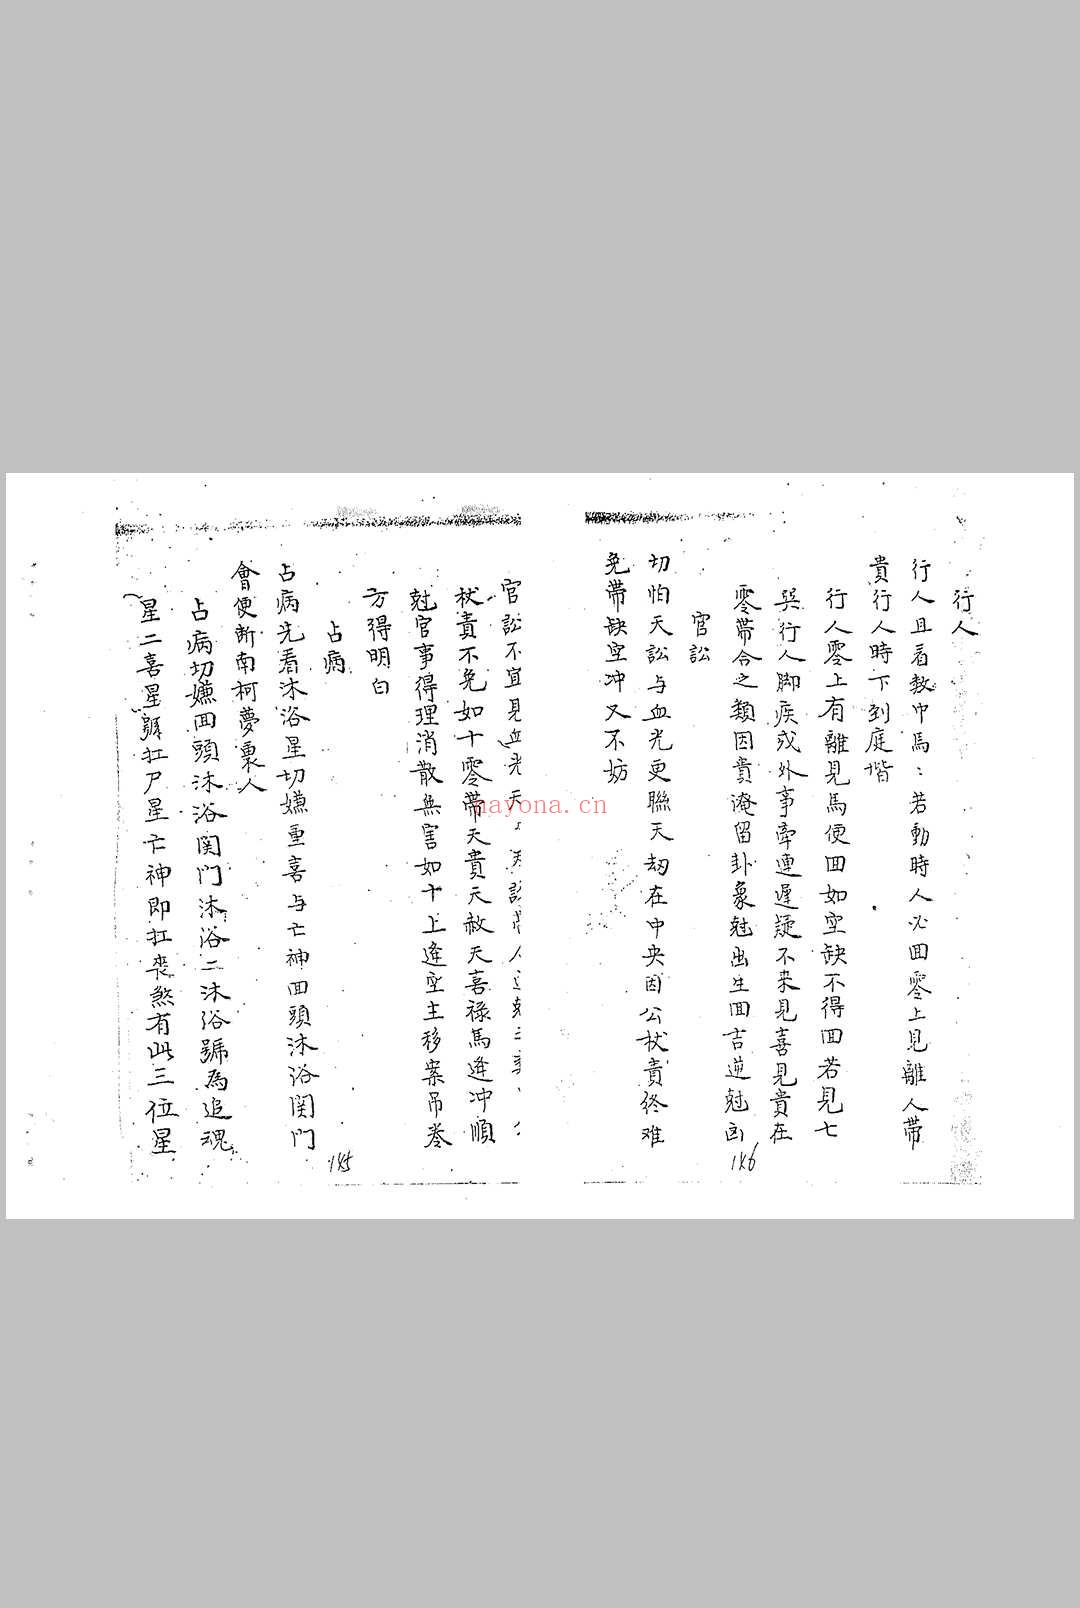 行人
行人且看教中馬：若動時人必回零上見離人帶
貴行人時下到庭堦
行人零上有離見馬便回如空缺不得回若見七
吳行人脚疾或外事牽連遲疑不来見喜見貴在
零帶合之類因貴淹留卦象尅出生回吉逆尅凶
官訟
切怕天訟与血光更聯天刼在中央因公杖責终难
免帶缺空冲又不妨
146
官訟不宜見血光天
杖責不免如十零帶天貴天赦天喜禄馬逢冲順
尅官事得理消散無害如十上逢空主移案吊卷
方得明白
占病
占病先看沐浴星切嫌重喜与亡神回頭沐浴関門
會便斷南柯夢裏人
占病切嫌回頭沐浴関門沐浴二沐浴號為追魂
星二喜星號扛尸星亡神即扛喪煞有此三位星
145
nayona.cn